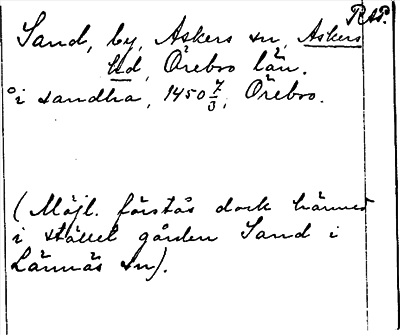 Rsp.
Sand, by, Askers sn, Askers
hd, Örebro län.
i sandha, 1450 7/3, Örebro.
(Möjl. förstås dock härmed
i stället gården Sand i
Lännäs sn).